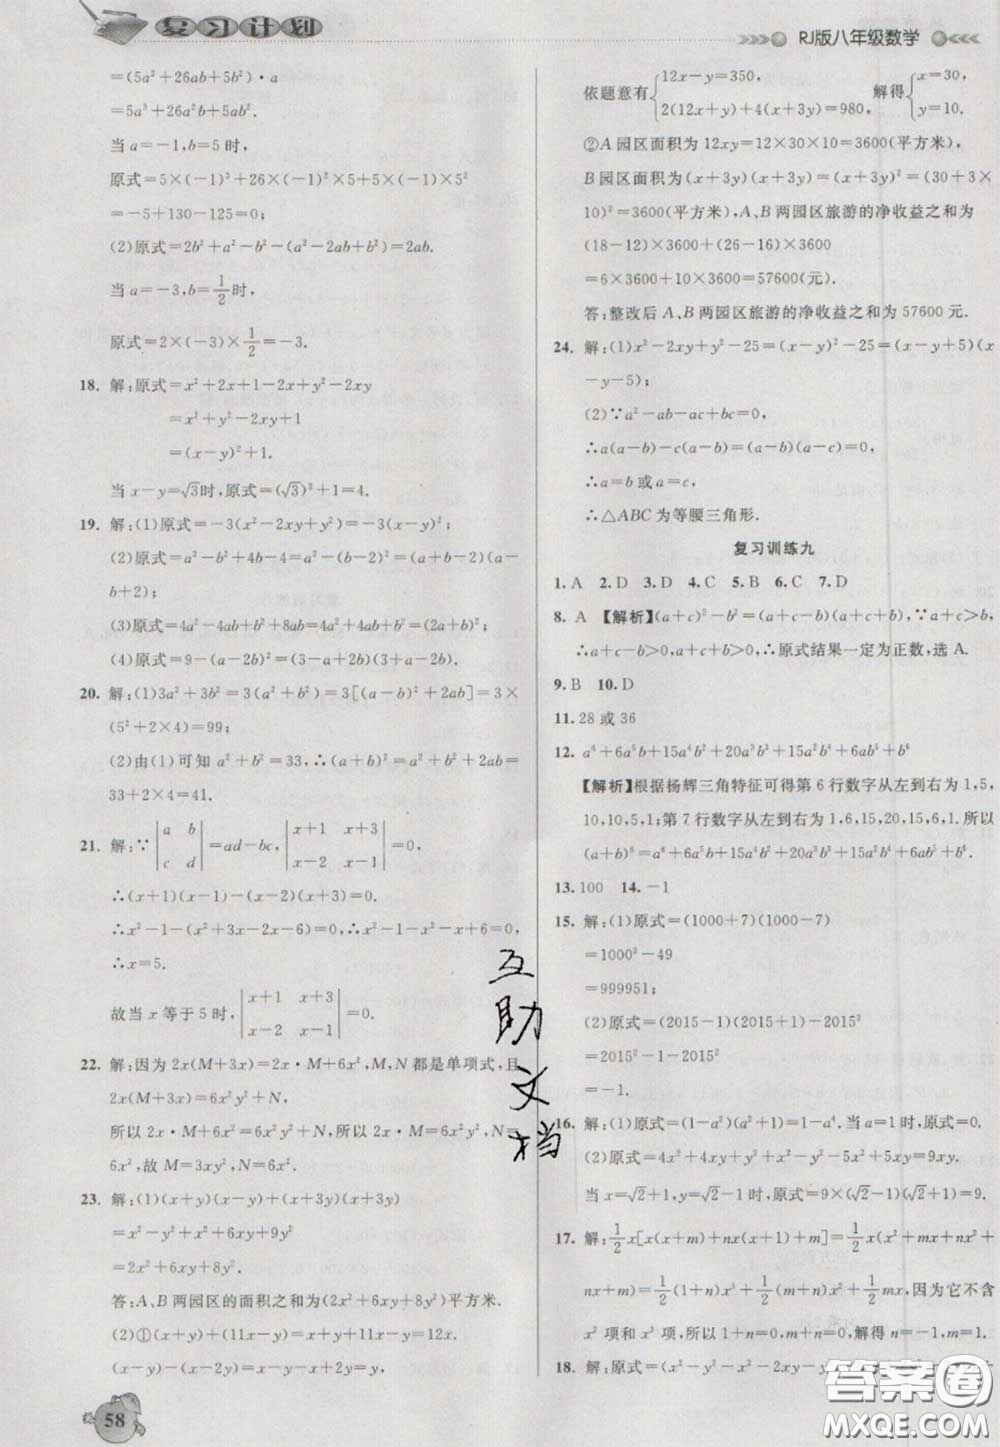 复习计划
RJ版八年级数学
=(5a²+26ab+5b²)·a
=5a³+26a²b+5ab².
当 a=-1,b=5 时,
原式=5×(-1)³+26×(-1)²×5+5×(-1)×5²
=-5+130-125=0;
(2)原式=2b²+a²-b²-(a²-2ab+b²)=2ab.
当 a=-3,b=1/2时,
原式=2×(-3)×1/2=-3.
18. 解:原式=x²+2x+1-2x+y²-2xy
=x²+y²-2xy+1
=(x-y)²+1.
当 x-y=√3时,原式=(√3)²+1=4.
19. 解:(1)原式=-3(x²-2xy+y²)=-3(x-y)²;
(2)原式=a²-b²+4b-4=a²-(b-2)²=(a+b-2)(a-b+2);
(3)原式=4a²-4ab+b²+8ab=4a²+4ab+b²=(2a+b)²;
(4)原式=9-(a-2b)²=(3-a+2b)(3+a-2b).
20. 解:(1)3a²+3b²=3(a²+b²)=3[(a-b)²+2ab]=3×
(5²+2×4)=99;
(2)由(1)可知 a²+b²=33,∴(a+b)²=a²+b²+2ab=
33+2×4=41.
21. 解:∵|a b; c d|=ad-bc,|x+1 x+3; x-2 x-1|=0,
∴(x+1)(x-1)-(x-2)(x+3)=0,
∴x²-1-(x²+3x-2x-6)=0,∴x²-1-x²-x+6=0,
∴x=5.
故当 x 等于 5 时,|x+1 x+3; x-2 x-1|=0.
22. 解:因为 2x(M+3x)=2x·M+6x²,M,N 都是单项式,且
2x(M+3x)=6x²y²+N,
所以 2x·M+6x²=6x²y²+N,所以 2x·M=6x²y²,N=
6x²,故 M=3xy²,N=6x².
23. 解:(1)(x+y)(x-y)+(x+3y)(x+3y)
=x²-y²+x²+6xy+9y²
=2x²+6xy+8y².
答:A、B 两园区的面积之和为(2x²+6xy+8y²)平方米.
(2)①(x+y)+(11x-y)=x+y+11x-y=12x.
(x-y)-(x-2y)=x-y-x+2y=y,
58
依题意有{12x-y=350, 2(12x+y)+4(x+3y)=980, 解得{x=30, y=10.
②A 园区面积为 12xy=12×30×10=3600(平方米),
B 园区面积为(x+3y)(x+3y)=(x+3y)²=(30+3×
10)²=3600(平方米),A、B 两园区旅游的净收益之和为
(18-12)×3600+(26-16)×3600
=6×3600+10×3600=57600(元).
答:整改后 A、B 两园区旅游的净收益之和为 57600 元.
24. 解:(1)x²-2xy+y²-25=(x-y)²-25=(x-y+5)(x
-y-5);
(2)∵a²-ab-ac+bc=0,
∴a(a-b)-c(a-b)=(a-b)(a-c)=0,
∴a=b 或 a=c,
∴△ABC 为等腰三角形.
复习训练九
1. A 2. D 3. D 4. C 5. B 6. C 7. D
8. A 【解析】(a+c)²-b²=(a+c-b)(a+c+b),∵a+c>b,
∴a+c-b>0,a+c+b>0,∴原式结果一定为正数,选 A.
9. B 10. D
11. 28 或 36
12. a⁶+6a⁵b+15a⁴b²+20a³b³+15a²b⁴+6ab⁵+b⁶
【解析】根据杨辉三角特征可得第 6 行数字从左到右为 1,5,
10,10,5,1;第 7 行数字从左到右为 1,6,15,20,15,6,1. 所以
(a+b)⁶=a⁶+6a⁵b+15a⁴b²+20a³b³+15a²b⁴+6ab⁵+b⁶.
13. 100 14. -1
15. 解:(1)原式=(1000+7)(1000-7)
=1000²-49
=999951;
(2)原式=(2015-1)(2015+1)-2015²
=2015²-1-2015²
=-1.
16. 解:(1)原式=(1-a²)(a²+1)=1-a⁴.当 a=1时,原式=0.
(2)原式=4x²+4xy+y²-4x²+5y²-4xy+3y²=9y².
当 x=√2+1,y=√2-1时,原式=9×(√2-1)²
17. 解:1/2x[x(x+m)+nx(x+1)+m]=1/2x(x²+mx+nx²+
nx+m)=1/2(1+n)x³+1/2(m+n)x²+1/2mx,因为它不含
x² 项和 x³ 项,所以 1+n=0,m+n=0,解得 n=-1,m=1.
18. 解:原式=x²-4xy+4y²-(x²-2xy
互助文档
答案圈
MXQE.COM